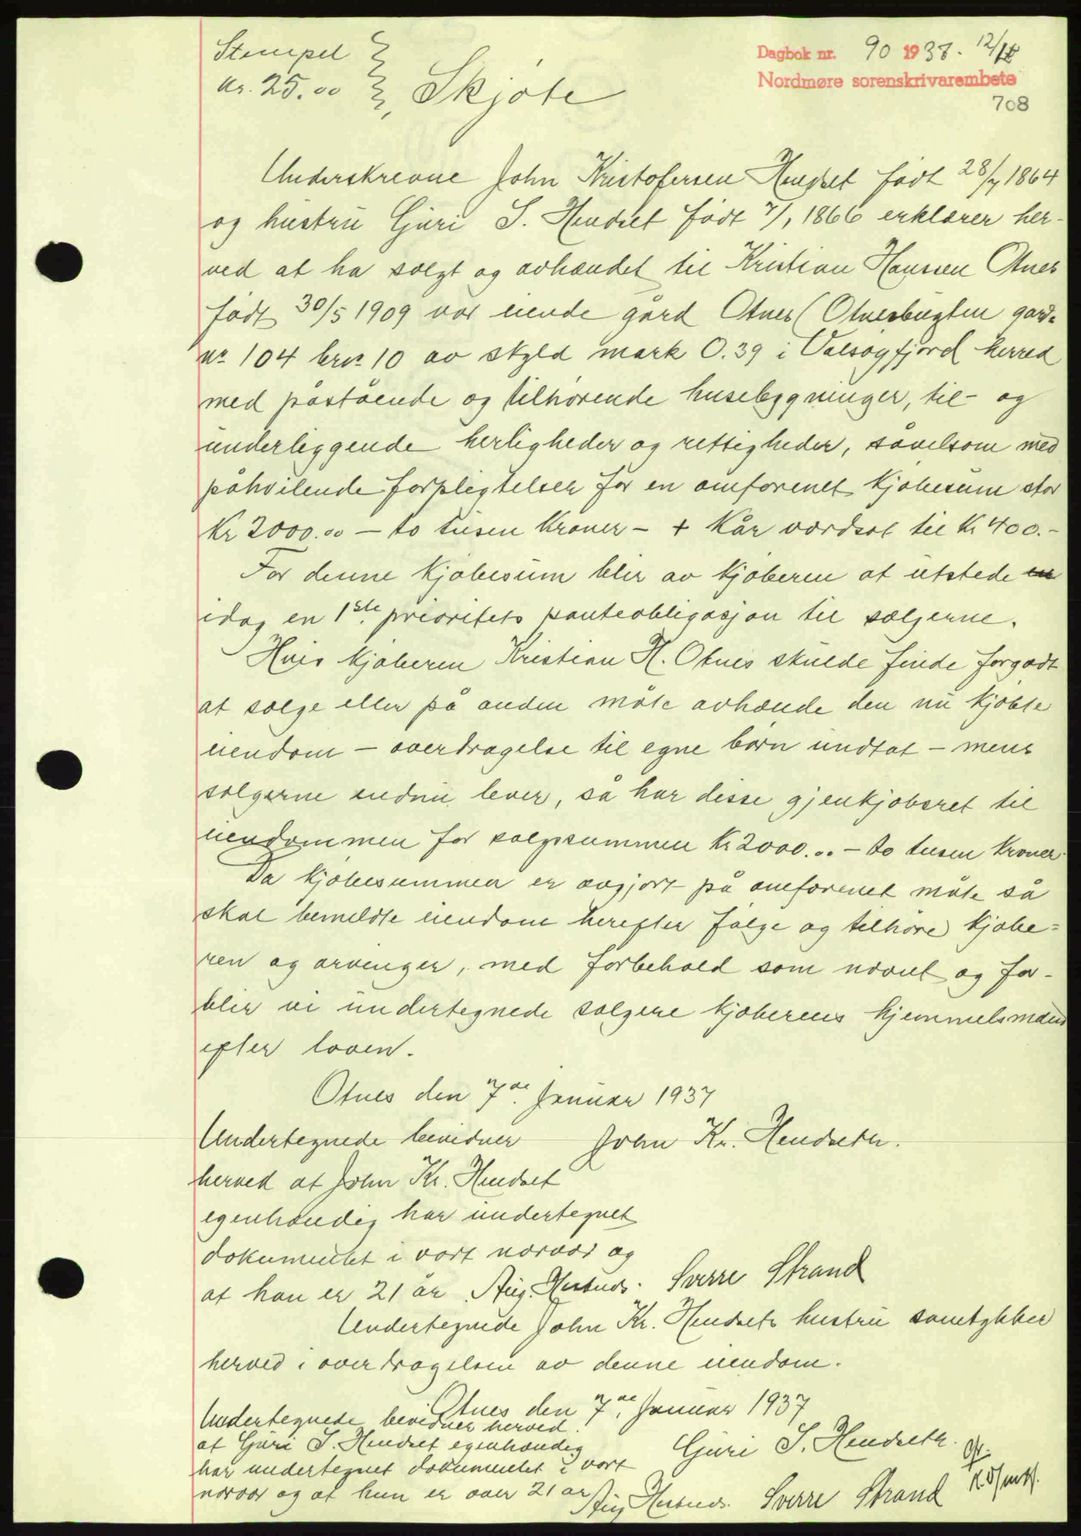 Stempel
Kr. 25.00
Skjøte
Dagbok nr. 90 1937. 12/1
Nordmøre sorenskrivarembete
708
Underskrevne John Kristofersen Hendset født 28/7 1864
og hustru Guri S. Hendset født 7/1 1866 erklærer her-
ved at ha solgt og avhændet til Kristian Hansen Otnes
født 30/5 1909 vor eiende gård Otnes (Otnesbugten gards
nr. 104 brnr. 10 av skyld mark 0.39 i Valsøyfjord herred
med påstående og tilhørende husebygninger, til- og
underliggende herligheder og rettigheder, såvelsom med
påhvilende forpligtelser for en omforenet kjøbesum stor
Kr 2000.00 - to tusen Kroner - + Kår værdsat til Kr 400.-
For denne kjøbesum blir av kjøberen at utstede
idag en 1ste prioritets panteobligasjon til sælgerne.
Hvis kjøberen Kristian H. Otnes skulde finde forgodt
at sælge eller på anden måte avhænde den nu kjøbte
eiendom - overdragelse til egne børn undtat - mens
sælgerne endnu lever, så har disse gjenkjøbsret til
eiendommen for salgssummen Kr 2000... - to tusen Kroner.
Da kjøbesummen er avgjort på omforenet måte så
skal bemeldte eiendom herefter følge og tilhøre kjøbe=
ren og arvinger, med forbehold som nævnt og for-
blir vi undertegnede sælgere kjøberens hjemmelsmænd
efter loven.
Otnes den 7de Januar 1937
Undertegnede bevidner John Kr. Hendseth.
herved at John Kr. Hendset
egenhændig har undertegnet
dokumentet i vort nærvær og
at han er 21 år. Aug. Sverre Strand
Undertegnede John Kr. Hendseths hustru samtykker
herved i overdragelsen av denne eiendom.
Otnes den 7de Januar 1937
Undertegnede bevidner herved
at Guri S. Hendset egenhændig Guri S. Hendseth.
har undertegnet dokumentet i vort
nærvær og at hun er over 21 år Aug Sverre Strand